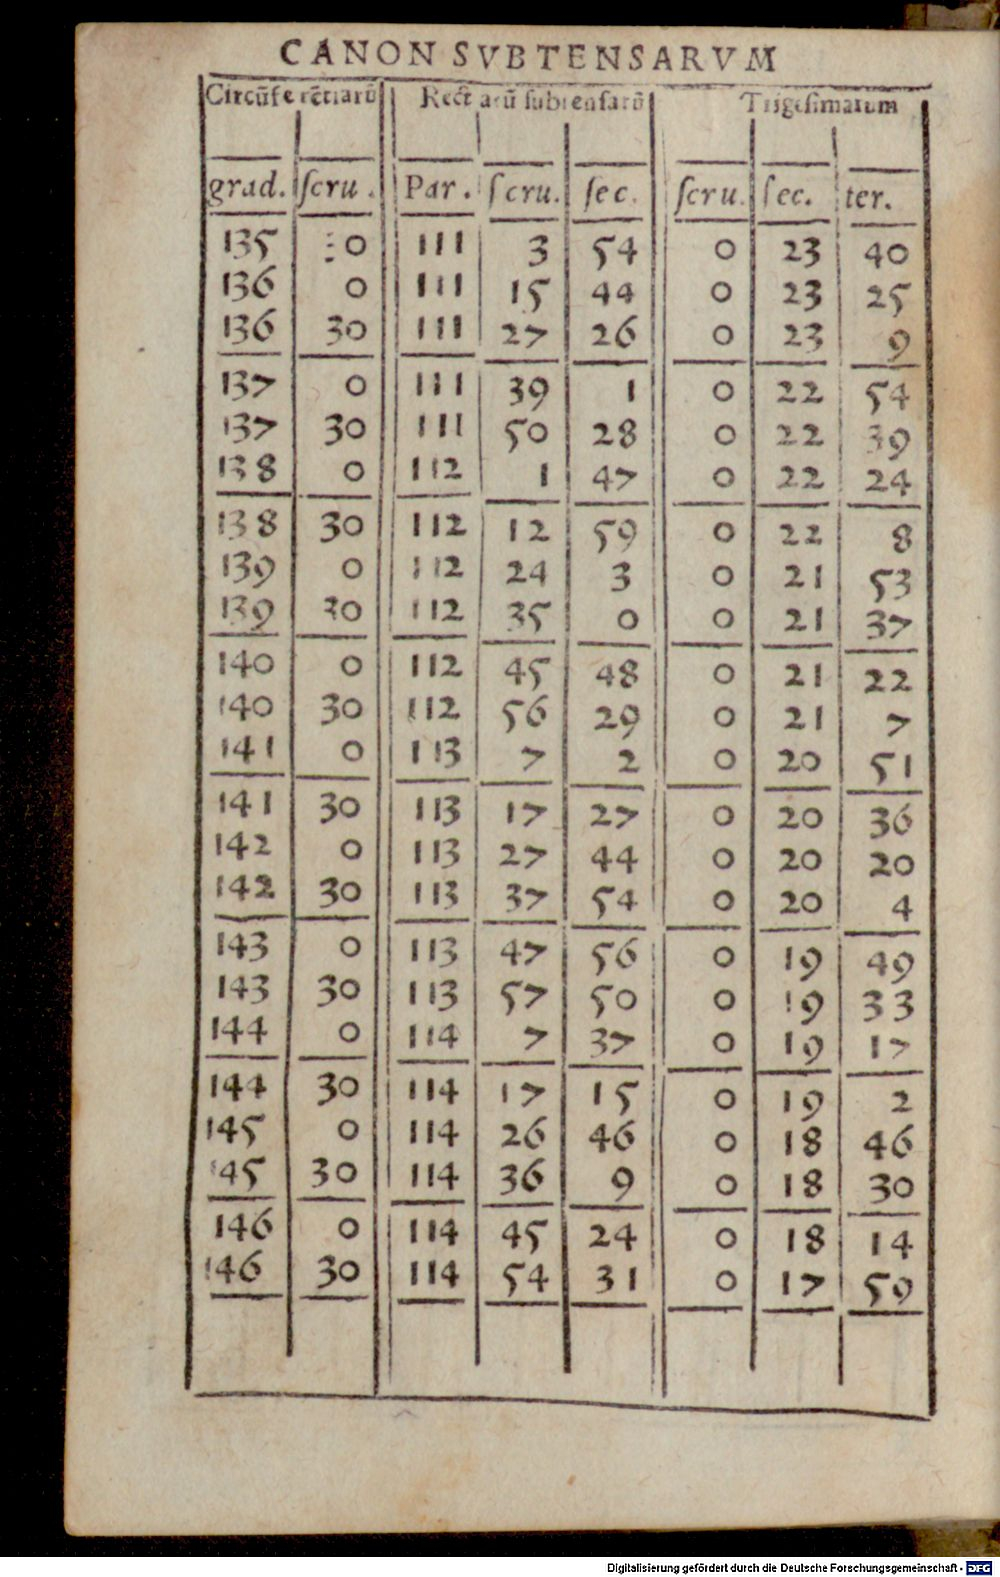 CANON SVBTENSARVM
Circũferẽtiarũ Rectarũ subtensarũ Trigesimarum
grad. scru. Par. scru. sec. scru. sec. ter.
135 30 111 3 54 0 23 40
136 0 111 15 44 0 23 25
136 30 111 27 26 0 23 9
137 0 111 39 1 0 22 54
137 30 111 50 28 0 22 39
138 0 112 1 47 0 22 24
138 30 112 12 59 0 22 8
139 0 112 24 3 0 21 53
139 30 112 35 0 0 21 37
140 0 112 45 48 0 21 22
140 30 112 56 29 0 21 7
141 0 113 7 2 0 20 51
141 30 113 17 27 0 20 36
142 0 113 27 44 0 20 20
142 30 113 37 54 0 20 4
143 0 113 47 56 0 19 49
143 30 113 57 50 0 19 33
144 0 114 7 37 0 19 17
144 30 114 17 15 0 19 2
145 0 114 26 46 0 18 46
145 30 114 36 9 0 18 30
146 0 114 45 24 0 18 14
146 30 114 54 31 0 17 59
Digitalisierung gefördert durch die Deutsche Forschungsgemeinschaft - DFG